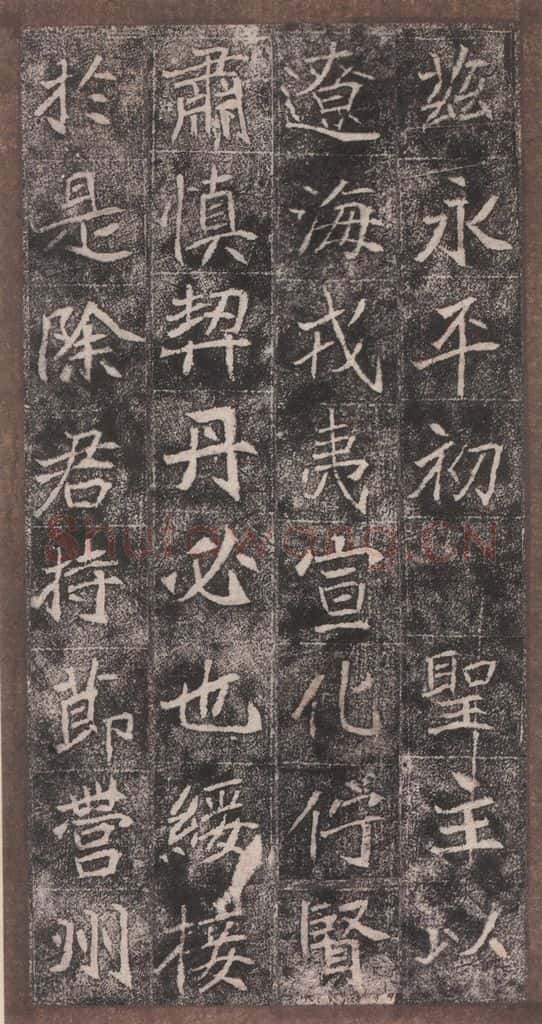 茲永平初　聖主以
遼海戎夷宣化佇賢
肅慎契丹必也綏接
於是除君持節營州
Shufawang.CN